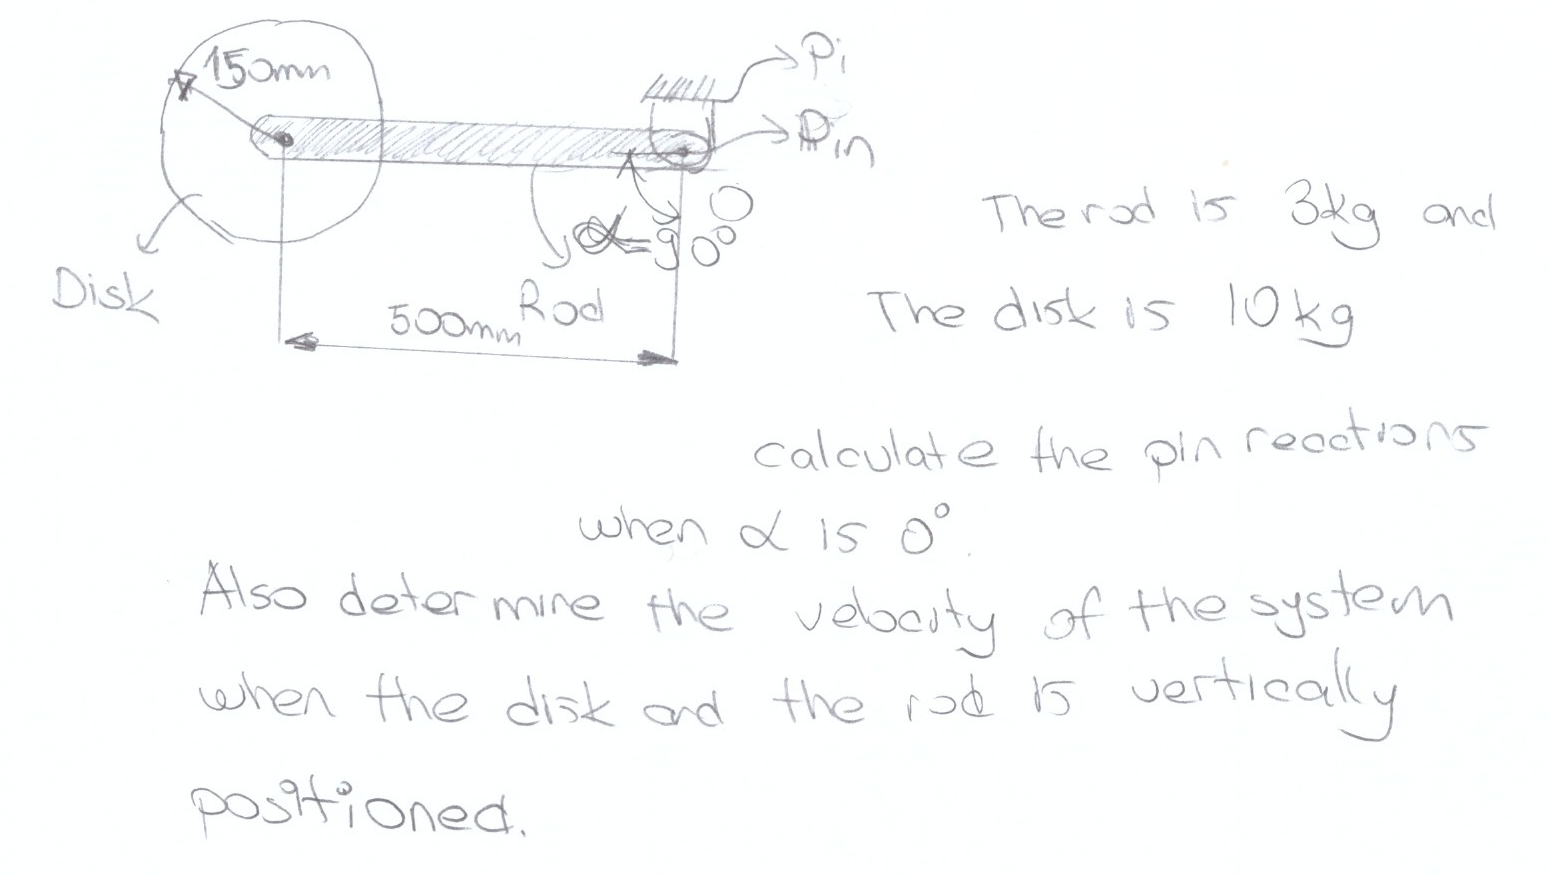 150mm
Pi
Pin
O
α=90°
Disk
Rod
500mm
The rod is 3kg and
The disk is 10kg
calculate the pin reactions
when α is 0°.
Also determine the velocity of the system
when the disk and the rod is vertically
positioned.